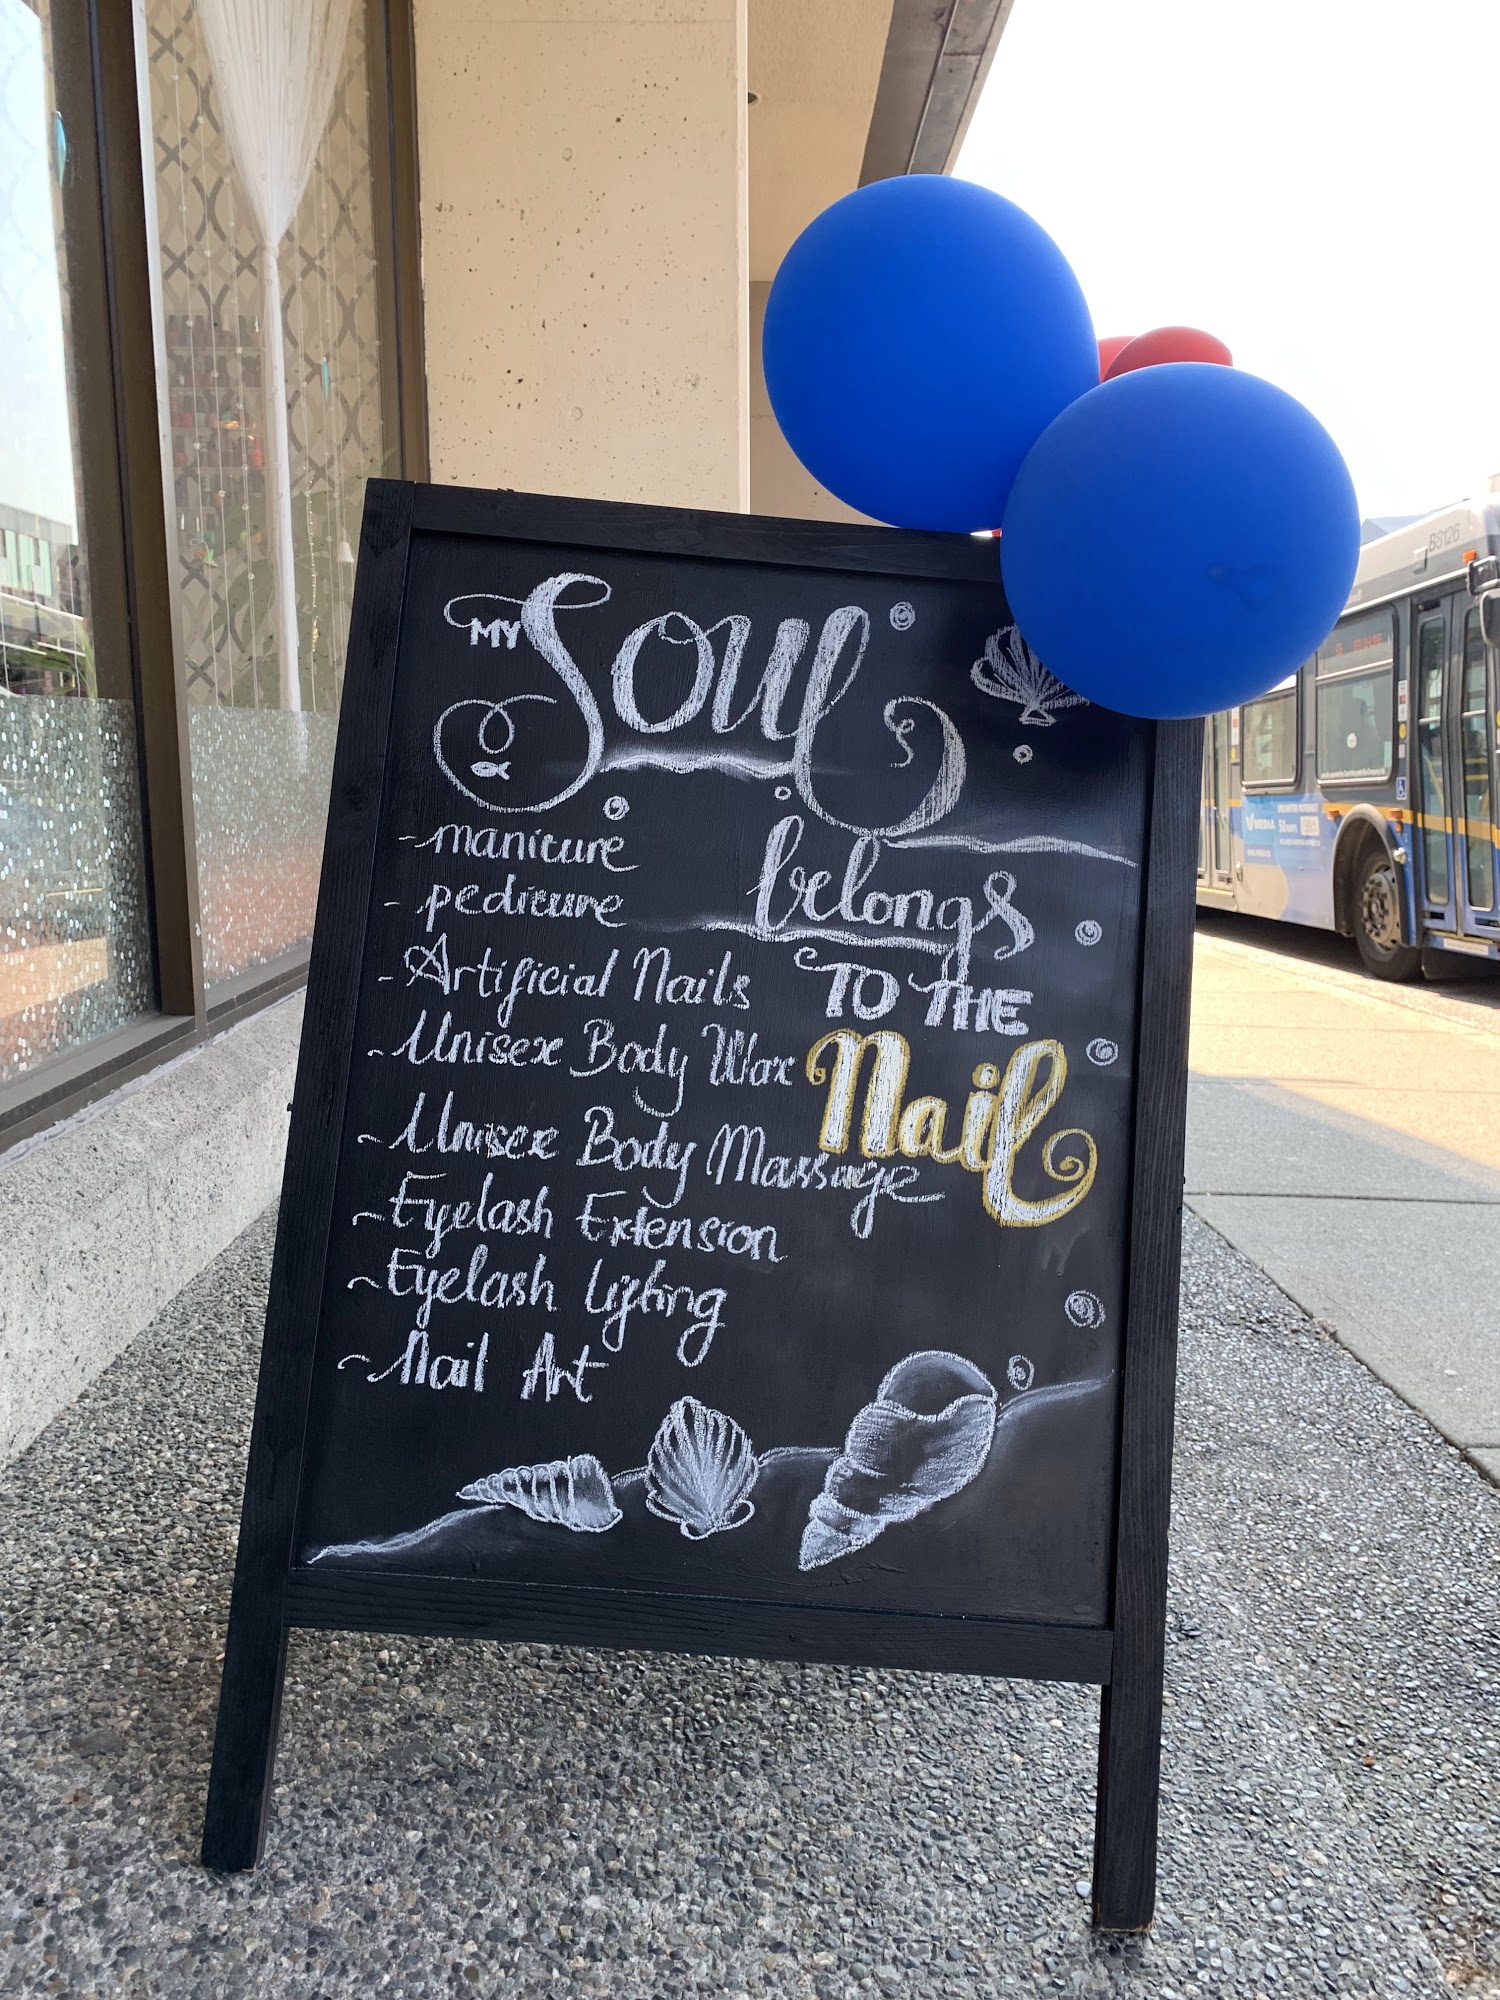 MY Soul
belongs
TO THE
Nail
- manicure
- pedicure
- Artificial Nails
- Unisex Body Wax
- Unisex Body Massage
- Eyelash Extension
- Eyelash Lifting
- Nail Art
B8126
MEDIA